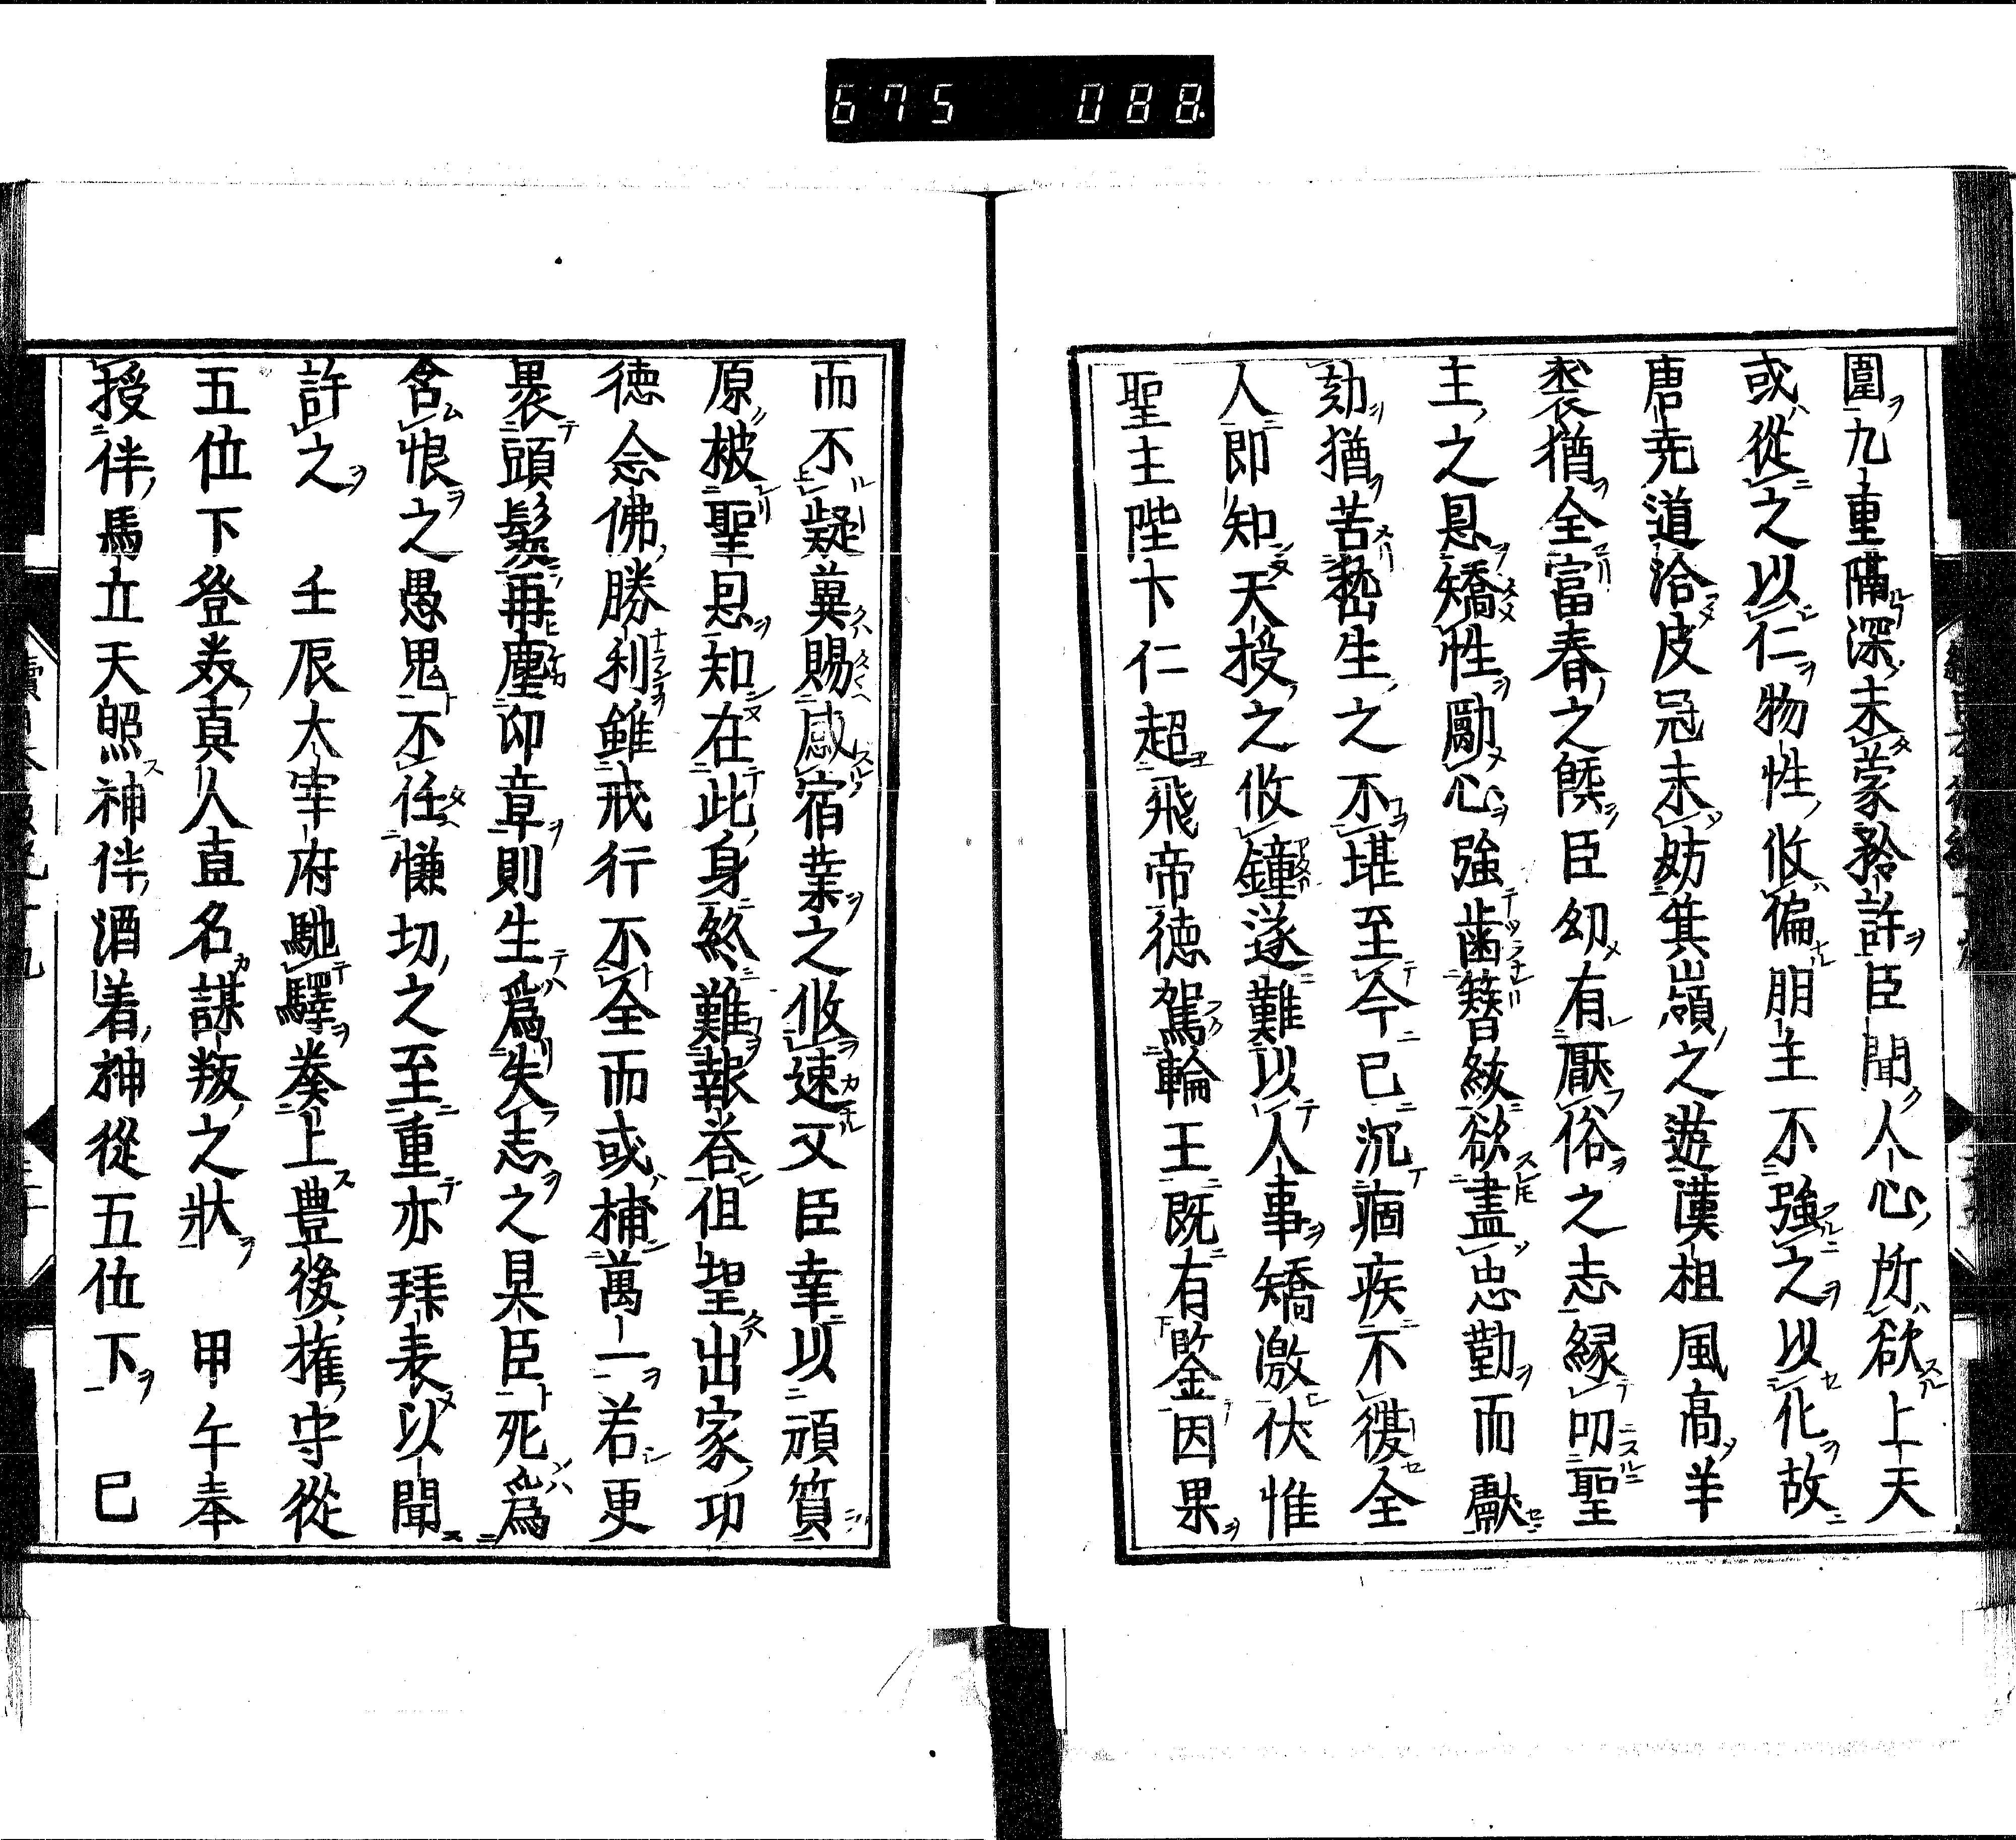 675 088
圍九重隔深未蒙矜許臣聞人心所欲上天
或從之以仁物性攸偏明主不強之以化故
唐尭道洽皮冠未妨箕嶺之遊漢祖風高羊
裘猶全富春之㮣臣幼有厭俗之志縁叨聖
主之恩矯性勵心強齒簪紱欲盡忠勤而獻
効猶苦勢生之不堪至今已沉痼疾不復全
人即知天授之攸鐘遂難以人事矯激伏惟
聖主陛下仁超飛帝徳駕輪王既有鑒因果
而不疑冀賜感宿業之攸速又臣幸以頑質
原被聖恩知在此身終難報答但聖出家功
徳念佛勝利雖戒行不全而或補萬一若更
褁頭鬢再塵印章則生爲失志之具臣死爲
含恨之愚鬼不任慊切之至重亦拜表以聞
許之　壬辰太宰府馳驛奏上豊後權守從
五位下登美真人直名謀叛之狀　甲午奉
授伴馬立天照神伴酒着神從五位下　已